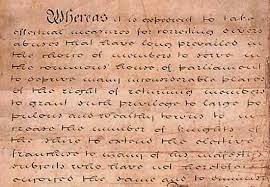 Whereas it is expedient to take
effectual measures for correcting divers
abuses that have long prevailed in
the choice of members to serve in
the commons house of parliament
to deprive many inconsiderable places
of the right of returning members
to grant such privilege to large po
pulous and wealthy towns to in
crease the number of knights of
the shire to extend the elective
franchise to many of his majestys
subjects who have not heretofore
enjoyed the same and to diminish